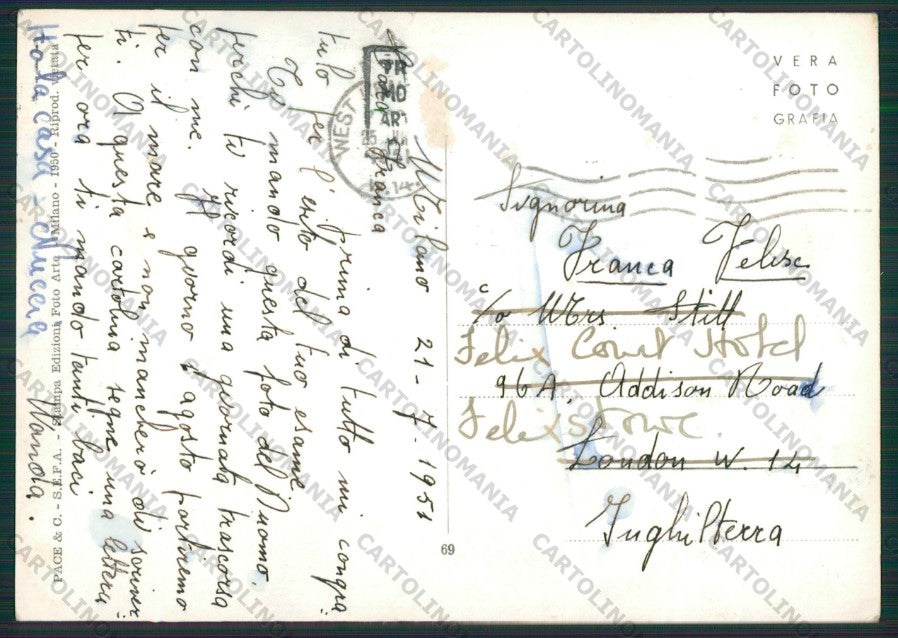 Milano 21-7-1951
Cara Franca
prima di tutto mi congra=
tulo per l'esito del tuo esame.
Ti mando questa foto del Duomo.
perchè ti ricordi una giornata trascorsa
con me. giorno d'agosto partiremo
per il mare e non mancherò di scriver=
ti. A questa cartolina segue una lettera
per ora ti mando tanti baci
Wanda.
PACE & C. - S.E.F.A. - Stampa Edizioni Foto Arte Milano - 1950 - Riprod. vietata
69
WEST
VERA
FOTO
GRAFIA
Signorina
Franca Felise
c/o Mrs Still
Felix Court Hotel
96A. Addison Road
Felixstowe
London W. 14
Inghilterra
CARTOLINOMANIA